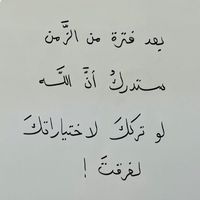 بعد فترة من الزَّمن
ستدركُ أنَّ اللَّه
لو ترككَ لاختياراتكَ
لغرقتَ !